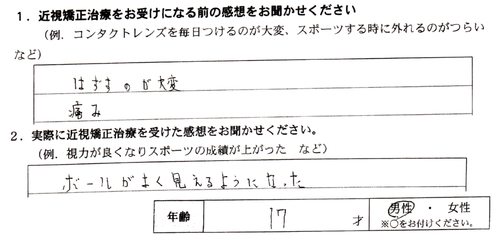 １．近視矯正治療をお受けになる前の感想をお聞かせください
（例．コンタクトレンズを毎日つけるのが大変、スポーツする時に外れるのがつらい
など）
はずすのが大変
痛み
２．実際に近視矯正治療を受けた感想をお聞かせください。
（例．視力が良くなりスポーツの成績が上がった　など）
ボールがよく見えるようになった
年齢 17 才 男性 ・ 女性
※○をお付けください。